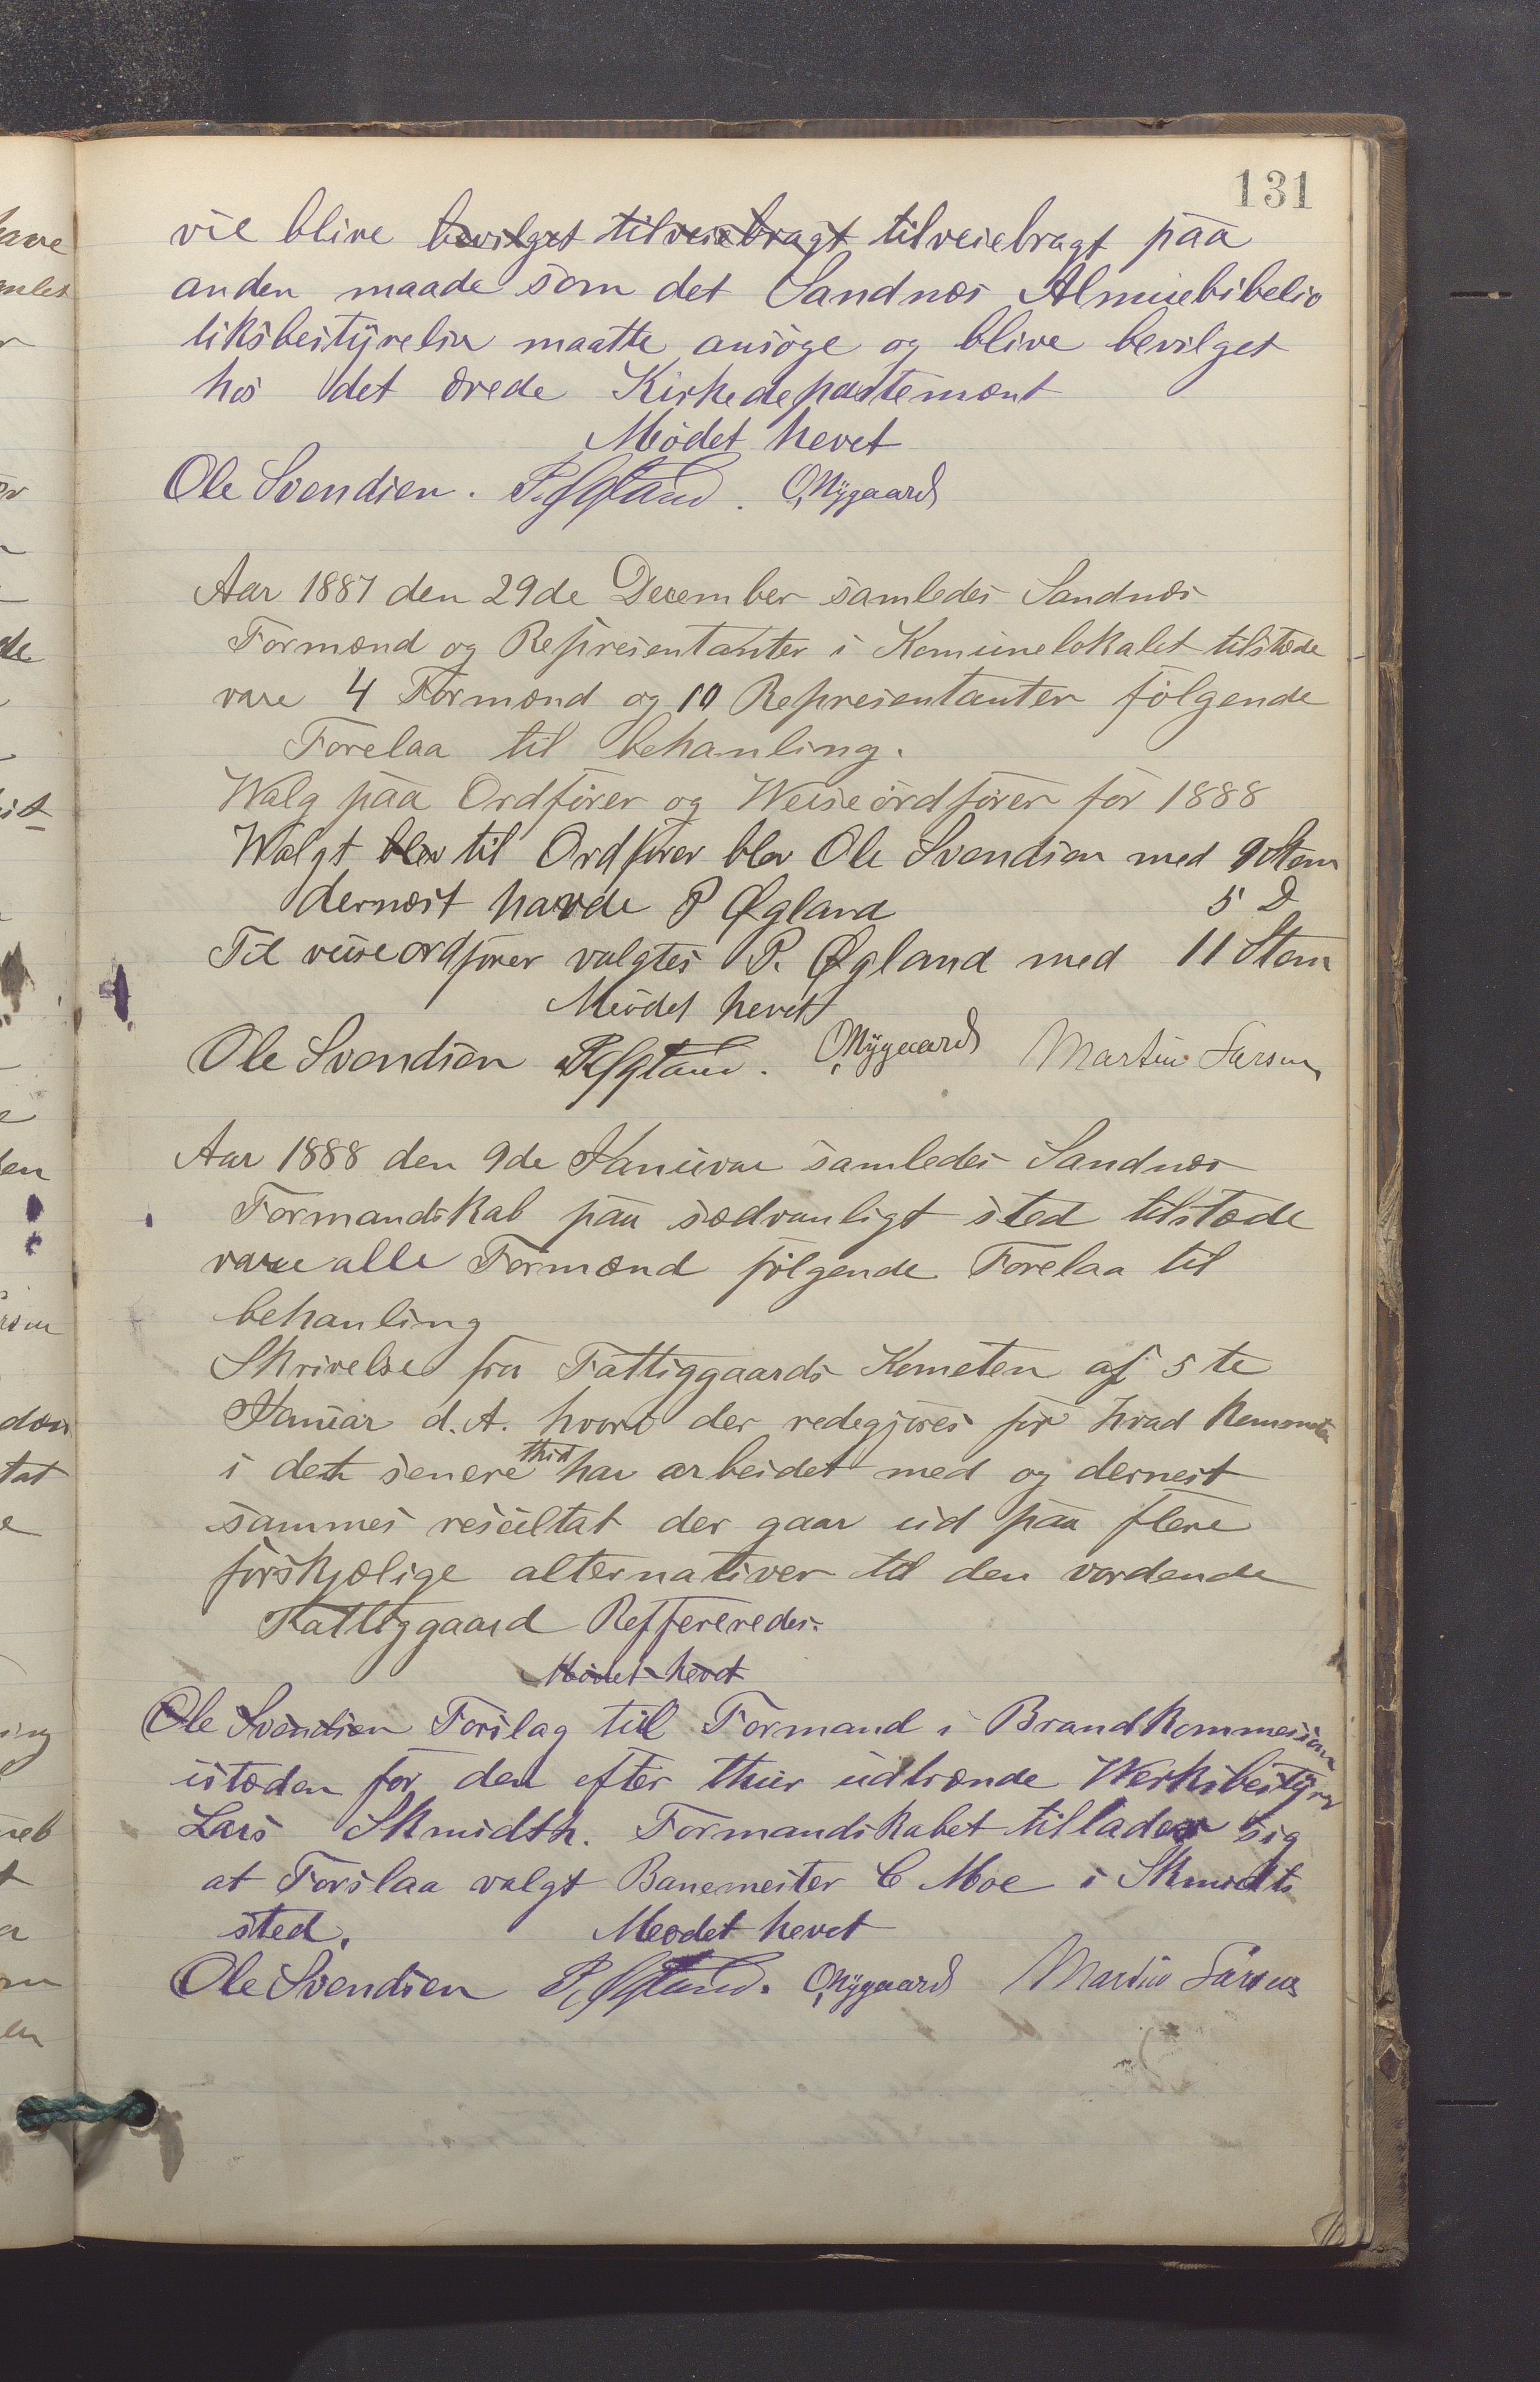 131
vil blive bevilget tilveiebragt tilveiebragt paa
anden maade som det Sandnæs Almuebibelio
tiksbestyrelse maatte ansøge og blive bevilget
hos det ærede Kirkedepartemænt
Mødet hevet
Ole Svendsen. P. Øgland. O, Nygaard
Aar 1887 den 29de December samledes Sandnæs
Formænd og Represientanter i Komunelokalet tilstæde
vare 4 Formænd og 10 Represientanter følgende
Forelaa til behanling.
Walg paa Ordfører og Weiseordfører for 1888
Walgt blev til Ordfører blev Ole Svendsen med 9 Stem
dernæst havde P Øgland 5 D
Til viseordfører valgtes P. Øgland med 11 Stem
Mødet hevet
Ole Svendsen P Øgland. O, Nygaard Martin Larsen
Aar 1888 den 9de Januvar samledes Sandnæs
Formandskab paa sædvanligt sted tilstæde
vare alle Formænd følgende Forelaa til
behanling
Skrivelse fra Fattiggaards Kometen af 5te
Januar d.A. hvori der redegjøres for hvad Komometen
i den senere thid har arbeidet med og dernest
sammes resultat der gaar ud paa flere
forskjælige alternativer til den vordende
Fattiggaard Reffereredes.
Mødet hevet
Ole Svendsen Forslag till Formand i Brandkommesion
istæden for den efter thur udtrænde Werksbestyrer
Lars Skmidth. Formandskabet tillader sig
at Forslaa valgt Banemester C Moe i Skmidts
sted. Meødet hevet
Ole Svendsen P, Øgland. O, Nygaard Martin Larsen